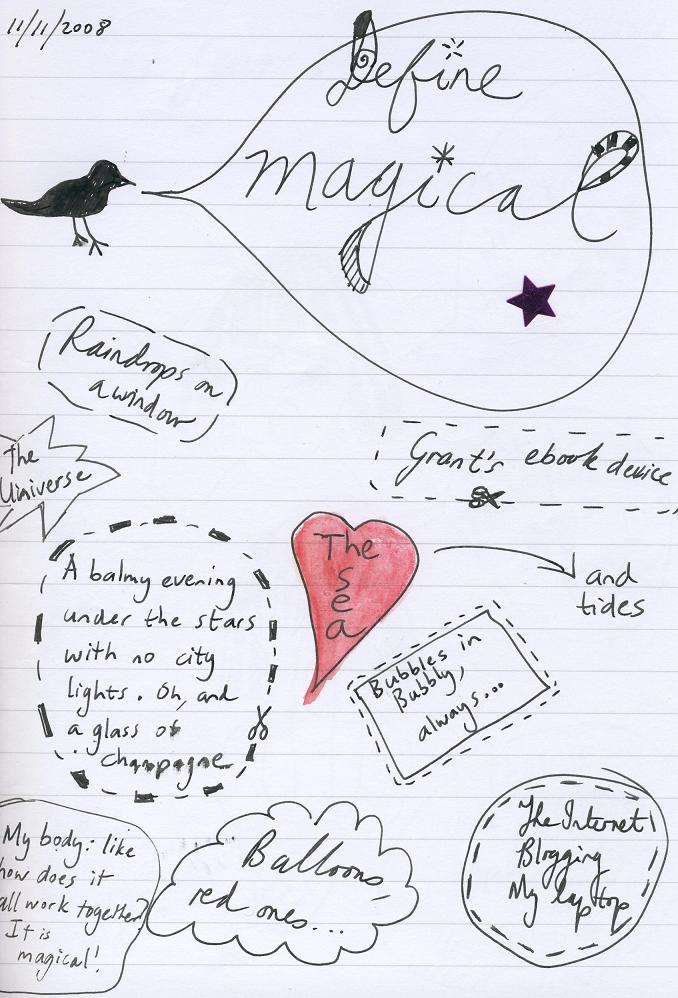 11/11/2008
Define
magical
Raindrops on
a window
The
Universe
Grant's ebook device
The
s
e
a
and
tides
A balmy evening
under the stars
with no city
lights. Oh, and
a glass of
champagne
Bubbles in
Bubbly,
always...
My body: like
how does it
all work together?
It is
magical!
Balloons
red ones...
The Internet
Blogging
My laptop